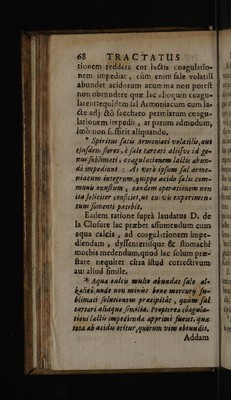 68 TRACTATUS
tionem reddere cur lactis coagulatio-
nem impediat, cùm enim sale volatili
abundet acidorum acumina non potest
non obtundere quæ lac alioquin coagu-
larent siquidem sal Armoniacum cum la-
cte adjecto saccharo permixtum coagu-
lationem impedit, at parum admodum,
imò non sufficit aliquando.
* Spiritus salis armoniaci volatilis, aut
ejusdem flores, è sale tartari aliisve id ge-
nus sublimati, coagulationem lactis abun-
dè impediunt : At verò ipsum sal armo-
niacum integrum, quippe acido salis com-
munis onustum, eandem operationem non
ita feliciter conficiet, ut cuivis experimen-
tum sumenti patebit.
Eadem ratione suprà laudatus D. de
la Closure lac præbet assumendum cum
aqua calcis, ad coagulationem impe-
diendam, dyssenteriisque & stomachi
morbis medendum, quod lac solum præ-
stare nequiret citra istud correctivum
aut aliud simile.
* Aqua calcis multo abundat sale al-
kalico, unde non minùs bene mercurij su-
blimati solutionem præcipitat, quàm sal
tartari aliaque similia. Proptereà coagula-
tioni lactis impediendæ apprimè favet, quæ
tota ab acidis oritur, quorum vim obtundit.
Addam